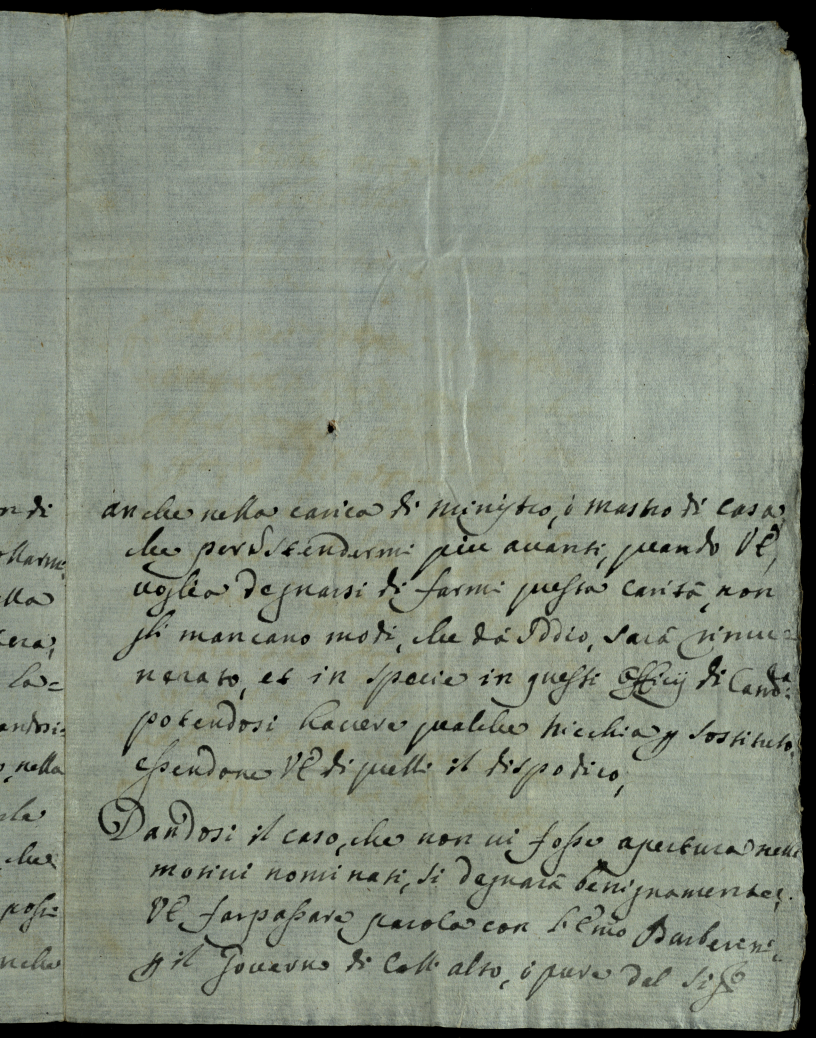 n di
ollarmi
ella
cera,
la=
andosi=
o, nella
che
posse
nche
anche nella carica di ministro, ò mastro di casa
che per Stendermi piu avanti, quando VE,
voglia degnarsi di farmi questa carità, non
gli mancano modi, che dà Iddio, sarà rimu=
nerato, et in specie in questi Officij di Cand:ra
potendosi havere qualche nicchia p sostituto,
essendone VE di quelli il dispotico,
Dandosi il caso, che non vi fosse apertura nelli
motivi nominati, si degnarà benignamente,
VE, far passare parola con l'Emo Barberini,
p il Governo di Coll'alto, ò pure dal Sigr